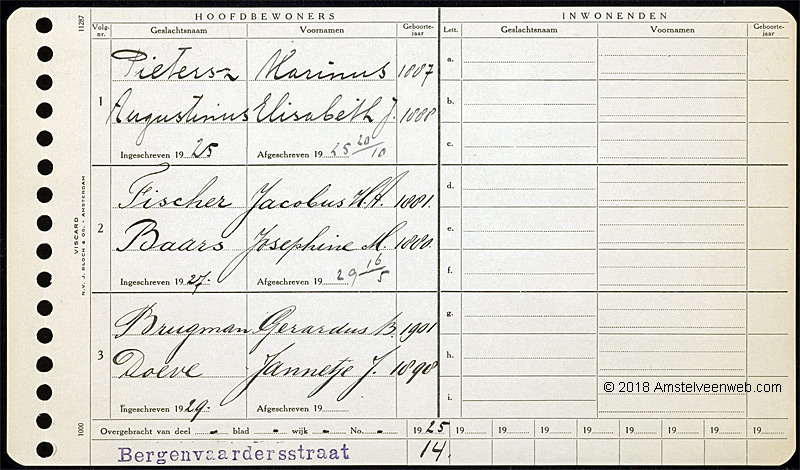 HOOFDBEWONERS INWONENDEN
Volg-nr. Geslachtsnaam Voornamen Geboorte-jaar Lett. Geslachtsnaam Voornamen Geboorte-jaar
11287
1
Pietersz Marinus 1887
Augustinus Elisabeth J. 1888
Ingeschreven 1925 Afgeschreven 19 25 20/10
2
Fischer Jacobus H.A. 1881.
Baars Josephine M. 1880.
Ingeschreven 1927. Afgeschreven 19 29 16/5
3
Brugman Gerardus B. 1901
Doeve Jannetje J. 1898
Ingeschreven 1929. Afgeschreven 19
a.
b.
c.
d.
e.
f.
g.
h.
i.
VISCARD
N.V. J. BLOCH & CO. - AMSTERDAM
1000
© 2018 Amstelveenweb.com
Overgebracht van deel - blad - wijk - No. - 1925 19 19 19 19 19 19 19 19
Bergenvaardersstraat 14.